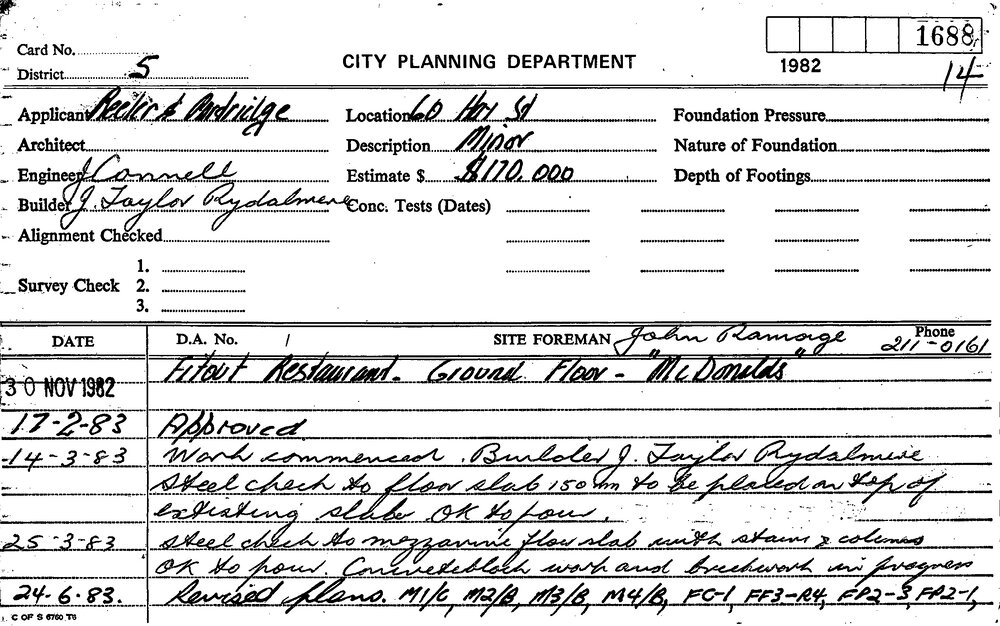 1688
Card No.
1982
14
District 5
CITY PLANNING DEPARTMENT
Applicant Reeler & Partridge Location 60 Hay St Foundation Pressure
Architect Description Minor Nature of Foundation
Engineer J Connell Estimate $ $170.000 Depth of Footings
Builder J. Taylor Rydalmere Conc. Tests (Dates)
Alignment Checked
1.
Survey Check 2.
3.
DATE D.A. No. / SITE FOREMAN John Ramage Phone 211-0161
30 NOV 1982 Fitout Restaurant - Ground Floor - "McDonalds"
17-2-83 Approved
14-3-83 Work commenced. Builder J. Taylor Rydalmere
Steel check to floor slab 150 mm to be placed on top of
existing slab OK to pour.
25-3-83 Steel check to mezzanine floor slab with stairs & columns
OK to pour. Concreteblock work and brickwork in progress
24-6-83. Revised plans. M1/C, M2/B, M3/B, M4/B, FC-1, FF3-R4, FP2-3, FP2-1,
C OF S 6760 T6